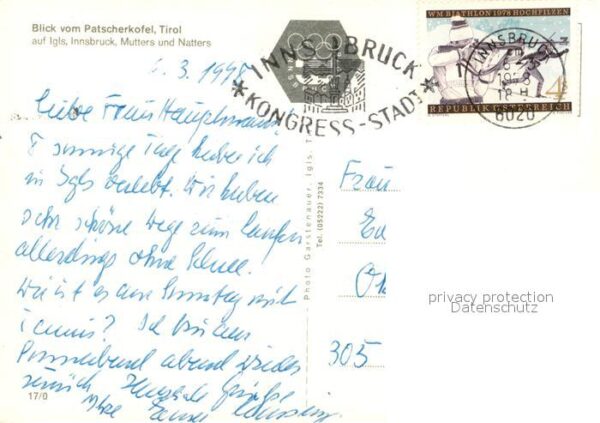 Blick vom Patscherkofel, Tirol
auf Igls, Innsbruck, Mutters und Natters
6.3.1978
Liebe Frau Hauptmann!
8 sonnige Tage habe ich
in Igls verlebt. Wir haben
sehr schöne Wege zum Laufen
allerdings ohne Schnee.
Wie ist es am Sonntag mit
Ich bin am
Sonnabend abend wieder
zurück. Herzliche Grüße
Ihre
17/0
Photo Garstenauer, Igls, T
Tel. (05222) 7334
INNSBRUCK
KONGRESS-STADT
WM BIATHLON 1978 HOCHFILZEN
REPUBLIK ÖSTERREICH
INNSBRUCK
6020
Frau
305
privacy protection
Datenschutz